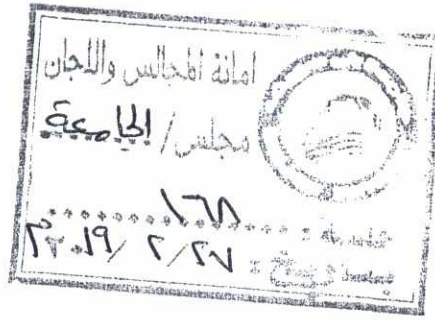 امانة المجالس واللجان
مجلس / الجامعة
جلسة : ١٦٨
بتاريخ : ٢٧ / ٢ / ٢٠١٩م